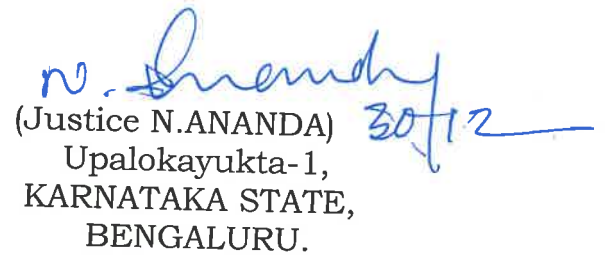 N. Ananda
(Justice N.ANANDA) 30/12
Upalokayukta-1,
KARNATAKA STATE,
BENGALURU.